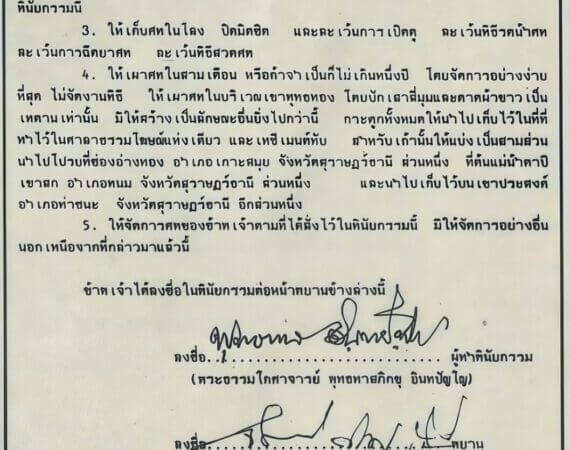 พินัยกรรมนี้
3. ให้เก็บศพในโลง ปิดมิดชิด และละเว้นการเปิดดู ละเว้นพิธีรดน้ำศพ
ละเว้นการฉีดยาศพ ละเว้นพิธีสวดศพ
4. ให้เผาศพในสามเดือน หรือถ้าจำเป็นก็ไม่เกินหนึ่งปี โดยจัดการอย่างง่าย
ที่สุด ไม่จัดงานพิธี ให้เผาศพในบริเวณเขาพุทธทอง โดยปักเสาสี่มุมและดาดผ้าขาวเป็น
เพดานเท่านั้น มิให้สร้างเป็นลักษณะอื่นยิ่งไปกว่านี้ กระดูกทั้งหมดให้นำไปเก็บไว้ในที่ที่
ทำไว้ในศาลาธรรมโฆษณ์แห่งเดียว และเทซีเมนต์ทับ สำหรับเถ้านั้นให้แบ่งเป็นสามส่วน
นำไปโปรยที่ช่องอ่างทอง อำเภอเกาะสมุย จังหวัดสุราษฎร์ธานี ส่วนหนึ่ง ที่ต้นแม่น้ำตาปี
เขาสก อำเภอพนม จังหวัดสุราษฎร์ธานี ส่วนหนึ่ง และนำไปเก็บไว้บนเขาประสงค์
อำเภอท่าชนะ จังหวัดสุราษฎร์ธานี อีกส่วนหนึ่ง
5. ให้จัดการศพของข้าพเจ้าตามที่ได้สั่งไว้ในพินัยกรรมนี้ มิให้จัดการอย่างอื่น
นอกเหนือจากที่กล่าวมาแล้วนี้
ข้าพเจ้าได้ลงชื่อในพินัยกรรมต่อหน้าพยานข้างล่างนี้
ลงชื่อ พุทธทาส อินทปัญโญ ผู้ทำพินัยกรรม
(พระธรรมโกศาจารย์ พุทธทาสภิกขุ อินทปัญโญ)
ลงชื่อ พยาน